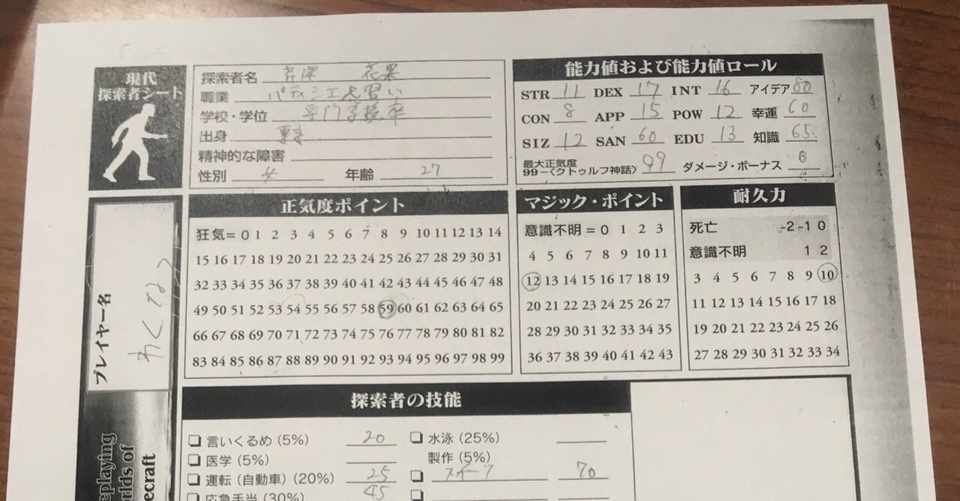 現代
探索者シート
探索者名 芹沢 花果
職業 パティシエ見習い
学校・学位 専門学校卒
出身 東京
精神的な障害
性別 女 年齢 27
能力値および能力値ロール
STR 11 DEX 17 INT 16 アイデア 80
CON 8 APP 15 POW 12 幸運 60
SIZ 12 SAN 60 EDU 13 知識 65
最大正気度
99-〈クトゥルフ神話〉 99 ダメージ・ボーナス 0
プレイヤー名
正気度ポイント
狂気=0 1 2 3 4 5 6 7 8 9 10 11 12 13 14
15 16 17 18 19 20 21 22 23 24 25 26 27 28 29 30 31
32 33 34 35 36 37 38 39 40 41 42 43 44 45 46 47 48
49 50 51 52 53 54 55 56 57 58 59 60 61 62 63 64 65
66 67 68 69 70 71 72 73 74 75 76 77 78 79 80 81 82
83 84 85 86 87 88 89 90 91 92 93 94 95 96 97 98 99
マジック・ポイント
意識不明=0 1 2 3
4 5 6 7 8 9 10 11
12 13 14 15 16 17 18 19
20 21 22 23 24 25 26 27
28 29 30 31 32 33 34 35
36 37 38 39 40 41 42 43
耐久力
死亡 -2 -1 0
意識不明 1 2
3 4 5 6 7 8 9 10
11 12 13 14 15 16 17 18
19 20 21 22 23 24 25 26
27 28 29 30 31 32 33 34
探索者の技能
言いくるめ (5%) 20
医学 (5%)
運転 (自動車) (20%) 25
応急手当 (30%) 45
水泳 (25%)
製作 (5%)
スイーツ 70
eplaying
rlds of
ecraft